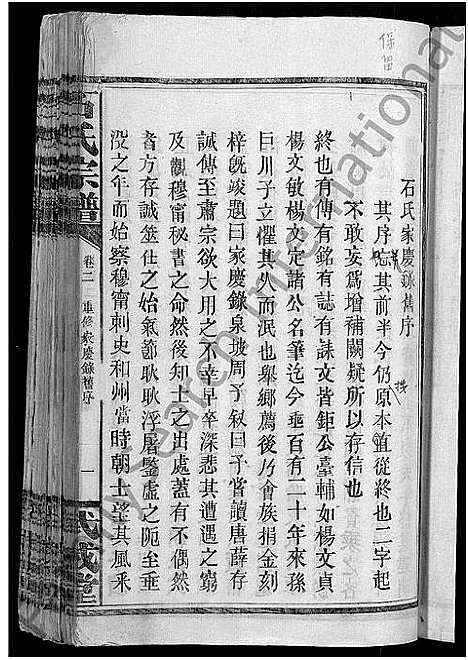 保留
石氏家慶錄舊序
其序忘其前半今仍原本直從終也二字起
不敢妄爲增補闕疑所以存信也
終也有傳有銘有誌有誄文皆鉅公臺輔如楊文貞
楊文敏楊文定諸公名筆迄今垂百有二十年來孫
巨川子立懼其久而泯也舉鄉薦後乃會族捐金刻
梓旣竣題曰家慶錄泉坡周子叙曰予嘗讀唐薛存
誠傳至肅宗欲大用之不幸早卒深悲其遭遇之窮
及觀穆甯秘書之命然後知士之出處蓋有不偶然
者方存誠筮仕之始氣節耿耿浮屠鑒虛之阨至垂
没之年而始察穆甯刺史和州當時朝士望其風采
石氏宗譜
卷二
重修家慶錄舊序
一
武威堂
MySearch International